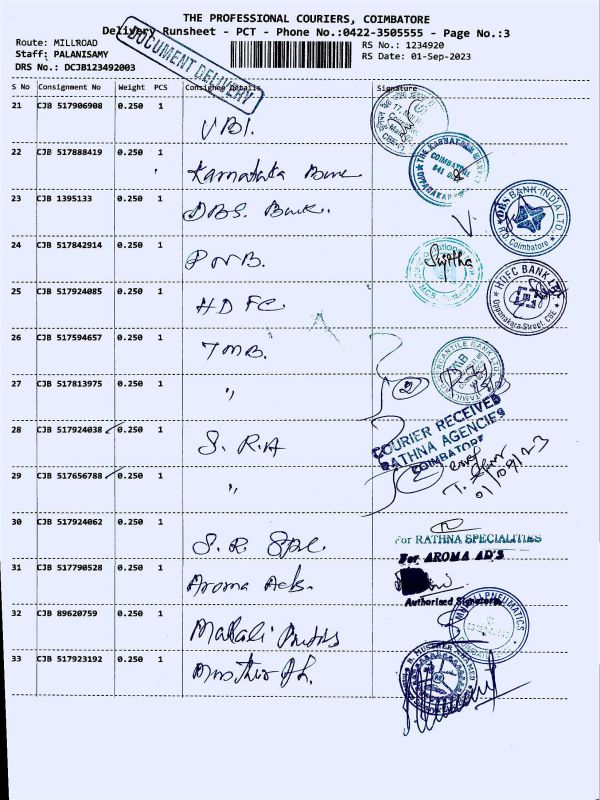 THE PROFESSIONAL COURIERS, COIMBATORE
Delivery Runsheet - PCT - Phone No.:0422-3505555 - Page No.:3
Route: MILLROAD
RS No.: 1234920
Staff: PALANISAMY
RS Date: 01-Sep-2023
DRS No.: DCJB123492003
DOCUMENT DELIVERY
S No Consignment No Weight PCS Consignee Details Signature
21 CJB 517906908 0.250 1 UBI.
22 CJB 517888419 0.250 1 Karnataka Bank
THE KARNATAKA BANK
COIMBATORE
641 001
23 CJB 1395133 0.250 1 DBS. Bank.
DBS BANK INDIA LTD
Coimbatore
24 CJB 517842914 0.250 1 PNB.
Sujitha
25 CJB 517924085 0.250 1 HDFC.
HDFC BANK LTD
Oppanakara Street, CBE
26 CJB 517594657 0.250 1 TMB.
MERCANTILE BANK LTD
TMB
27 CJB 517813975 0.250 1 "
2
28 CJB 517924038 0.250 1 S. R. A
COURIER RECEIVED
RATHNA AGENCIES
COIMBATORE
29 CJB 517656788 0.250 1 "
01/09/23
30 CJB 517924062 0.250 1 S. R. Spl.
For RATHNA SPECIALITIES
31 CJB 517790528 0.250 1 Aroma Ads.
For AROMA AD'S
Authorised Signatory
32 CJB 89620759 0.250 1
PNEUMATICS
33 CJB 517923192 0.250 1